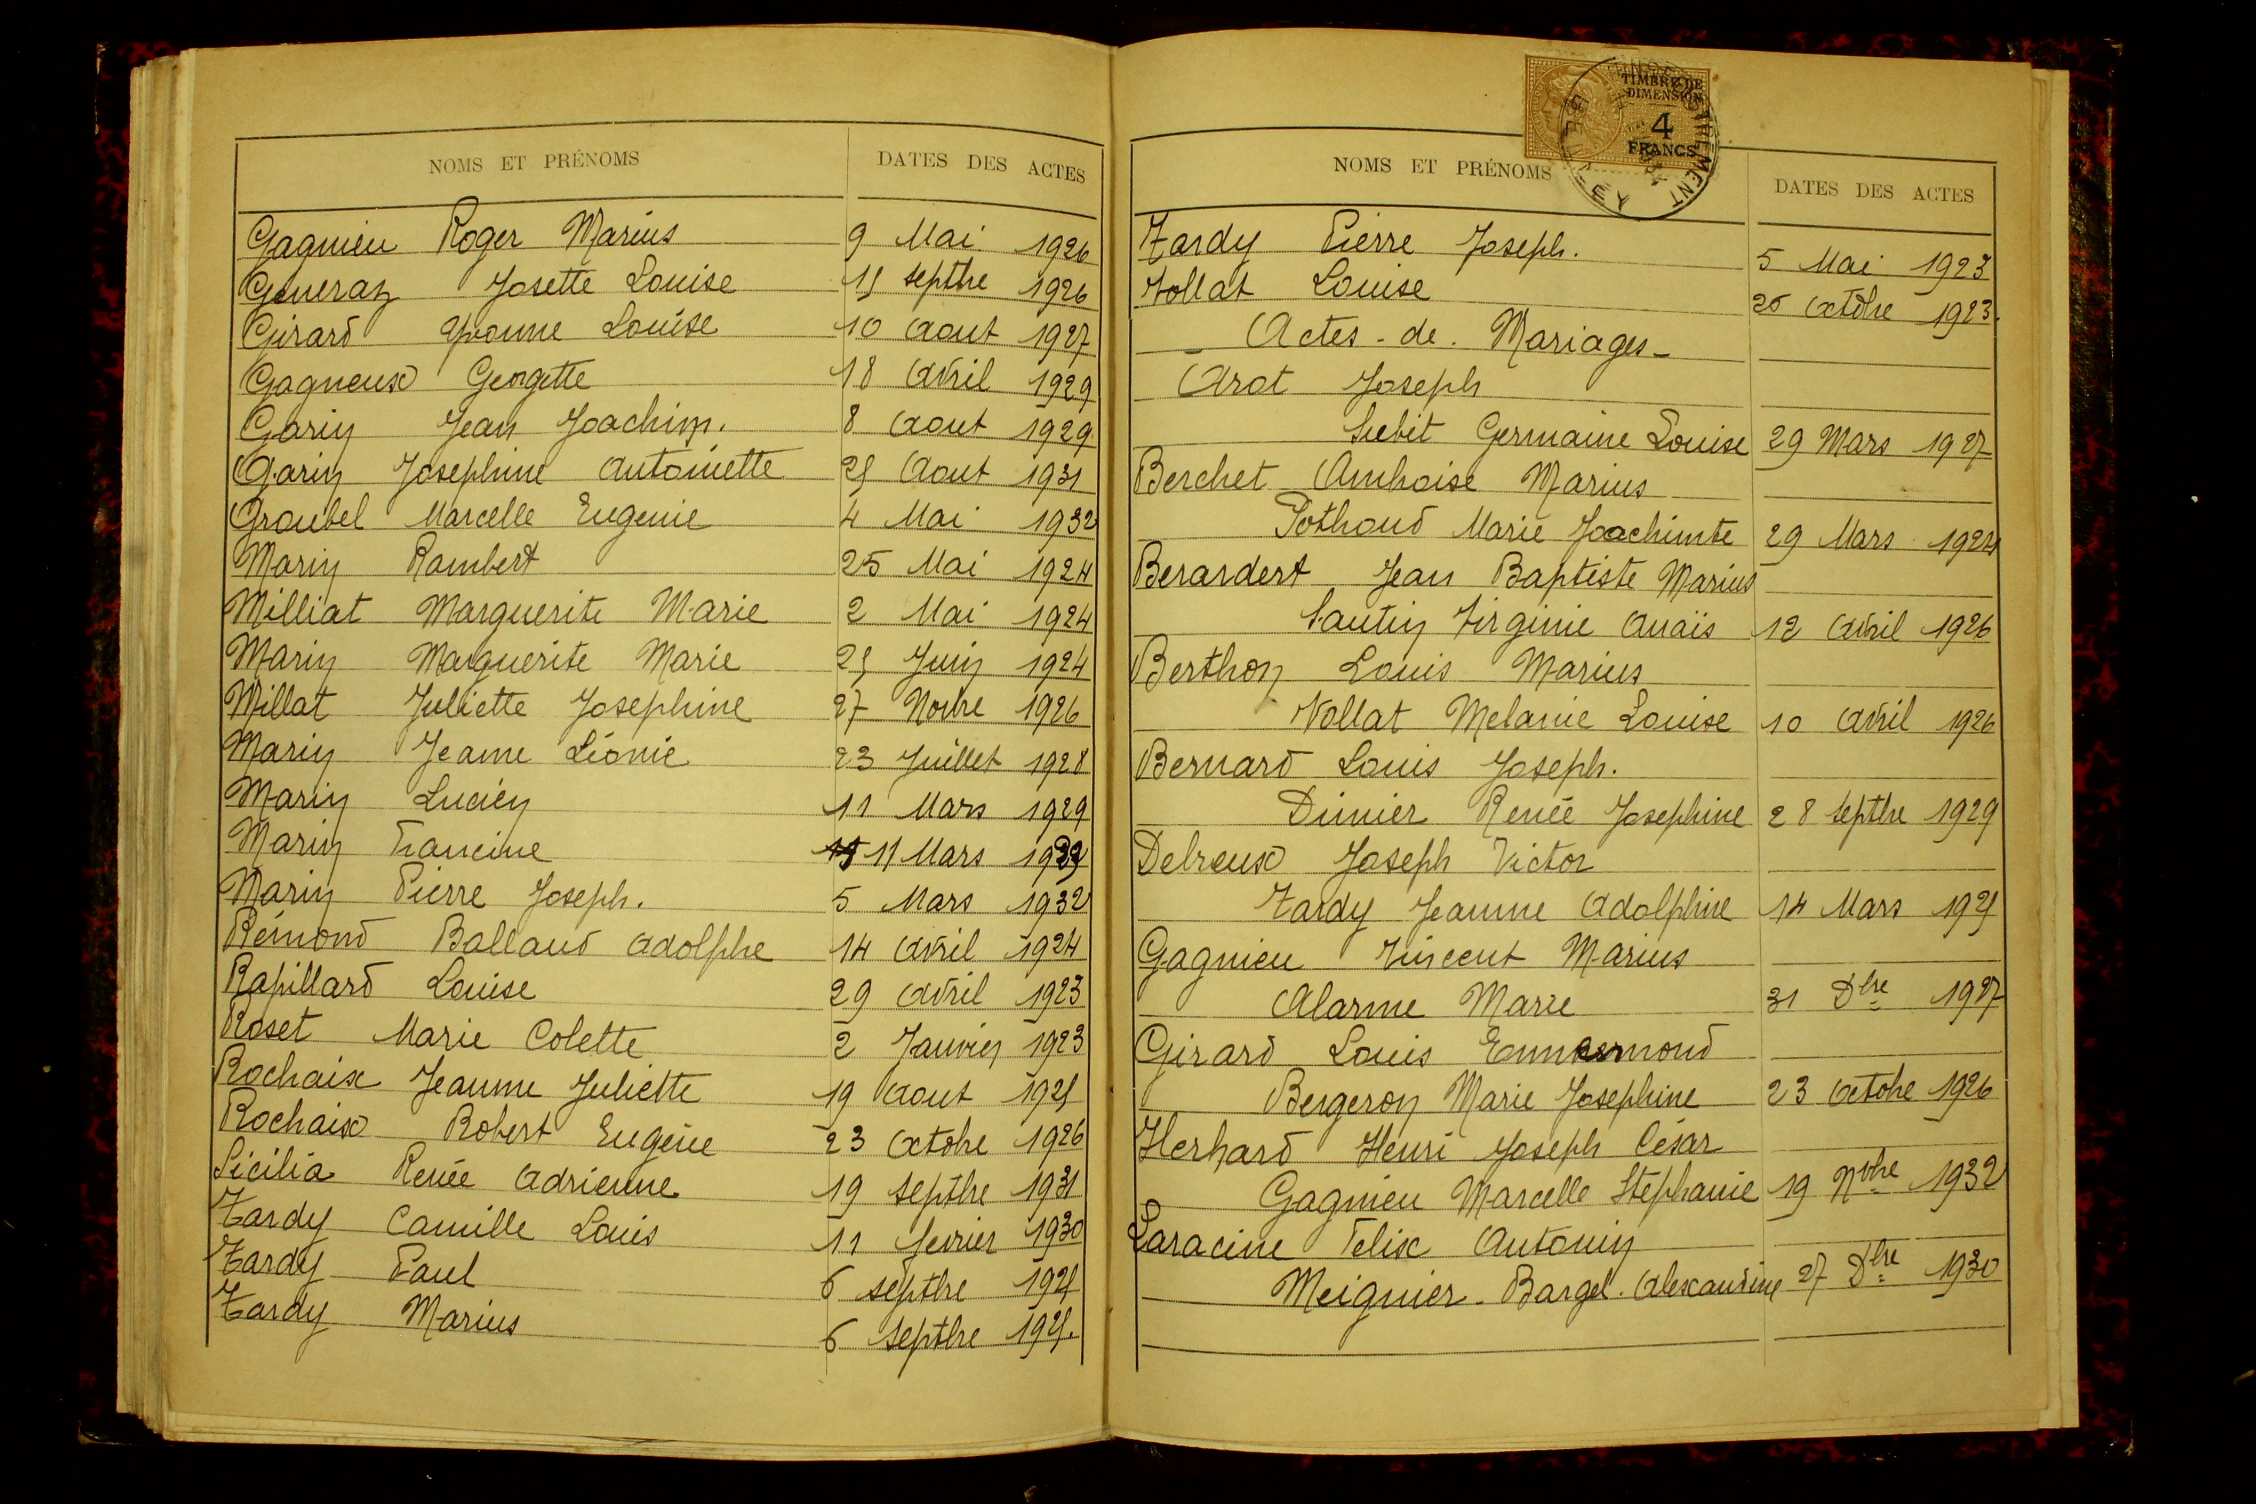 NOMS ET PRÉNOMS DATES DES ACTES
Gagnieu Roger Marius 9 Mai 1926
Gueneraz Josette Louise 15 septbre 1926
Girard Yvonne Louise 10 Aout 1927
Gagneux Georgette 18 Avril 1929
Garin Jean Joachim. 8 Aout 1929
Garin Josephine Antoinette 25 Aout 1931
Groubel Marcelle Eugenie 4 Mai 1932
Marin Rambert 25 Mai 1924
Milliat Marguerite Marie 2 Mai 1924
Marin Marguerite Marie 25 Juin 1924
Millat Juliette Josephine 27 Novbre 1926
Marin Jeanne Léonie 23 Juillet 1928
Marin Lucien 11 Mars 1929
Marin Francine 11 Mars
Marin Pierre Joseph. 5 Mars 1932
Rémond Balland Adolphe 14 Avril 1924
Rapillard Louise 29 Avril 1923
Roset Marie Colette 2 Janvier 1923
Rochaix Jeanne Juliette 19 Aout 1925
Rochaix Robert Eugène 23 Octobre 1926
Sicilia Renée Adrienne 19 septbre 1931
Tardy Camille Louis 11 fevrier 1930
Tardy Paul 6 septbre 1925
Tardy Marius 6 septbre 1925.
TIMBRE DE
DIMENSION
4
FRANCS
NOMS ET PRÉNOMS DATES DES ACTES
Tardy Pierre Joseph. 5 Mai 1923
Vollat Louise 20 Octobre 1923.
- Actes - de . Mariages -
Arot Joseph
Subit Germaine Louise 29 Mars 1927
Berchet Ambroise Marius
Pothoud Marie Joachimte 29 Mars 1924
Berardert Jean Baptiste Marius
Santin Virginie Anaïs 12 Avril 1926
Berthon Louis Marius
Vollat Melanie Louise 10 Avril 1926
Bernard Louis Joseph.
Dimier Renée Josephine 28 septbre 1929
Delreux Joseph Victor
Tardy Jeanne Adolphine 14 Mars 1925
Gagnieu Vincent Marius
Alarme Marie 31 Dbre 1927
Girard Louis
Bergeron Marie Josephine 23 Octobre 1926
Herhard Henri Joseph César
Gagnieu Marcelle Stephanie 19 Nbre 1932
Laracine Felix Antonin
Meignier - Bargel. Alexandrine 27 Dbre 1930